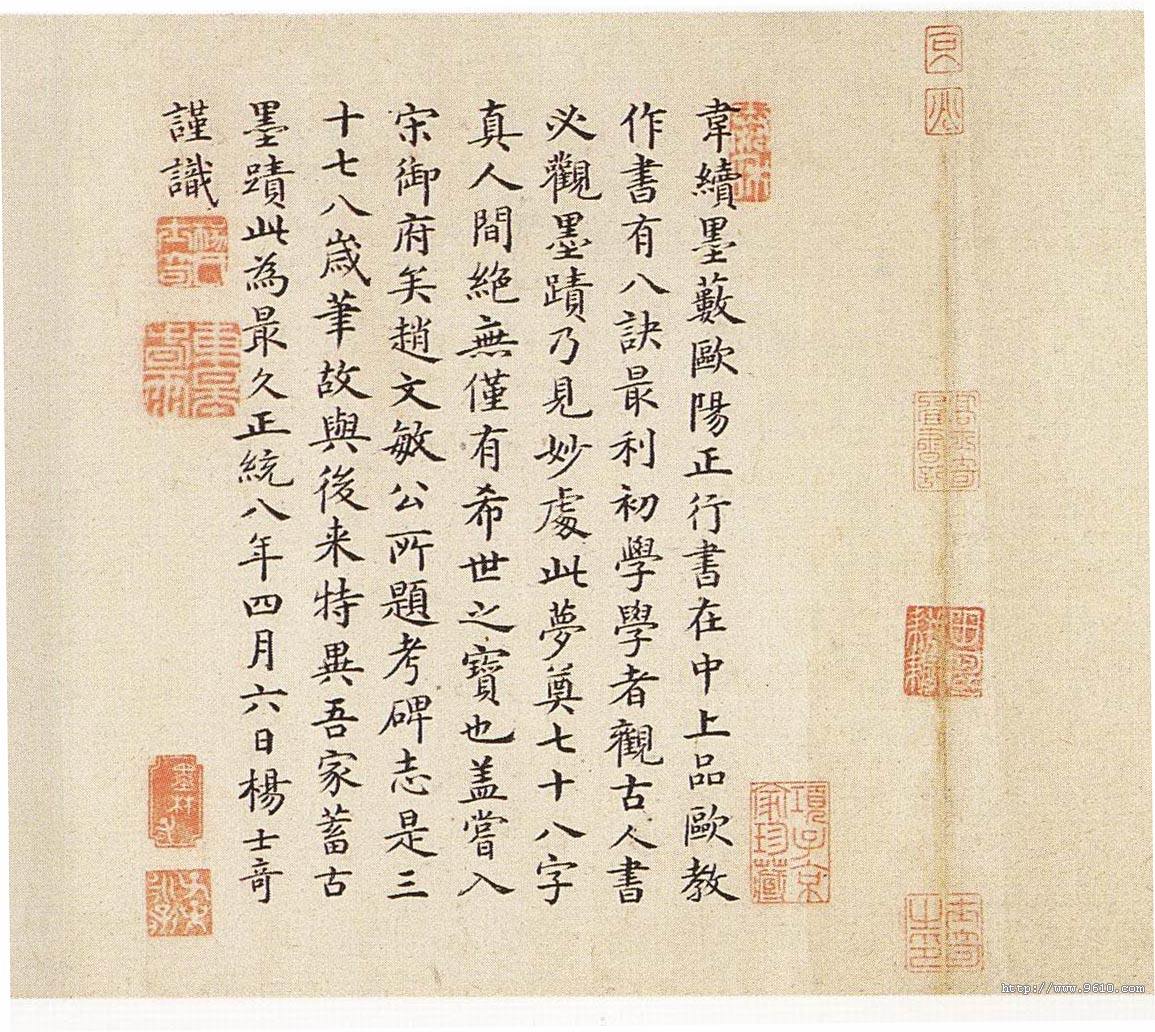 韋續墨藪歐陽正行書在中上品歐教
作書有八訣最利初學學者觀古人書
必觀墨蹟乃見妙處此夢奠七十八字
真人間絶無僅有希世之寶也盖嘗入
宋御府矣趙文敏公所題考碑志是三
十七八歲筆故與後来特異吾家蓄古
墨蹟此為最久正統八年四月六日楊士奇
謹識
項子京家珍藏
http://www.9610.com